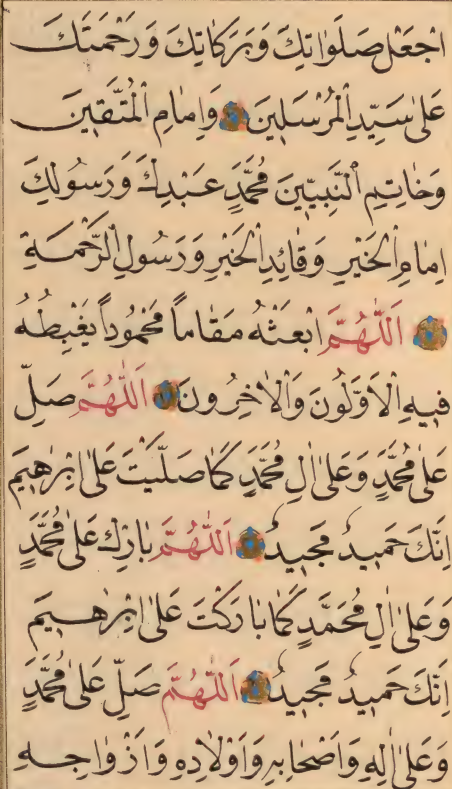 اجْعَلْ صَلَوَاتِكَ وَبَرَكَاتِكَ وَرَحْمَتَكَ
عَلٰى سَيِّدِ الْمُرْسَلِينَ وَاِمَامِ الْمُتَّقِينَ
وَخَاتِمِ النَّبِيِّينَ مُحَمَّدٍ عَبْدِكَ وَرَسُولِكَ
اِمَامِ الْخَيْرِ وَقَائِدِ الْخَيْرِ وَرَسُولِ الرَّحْمَةِ
اَللّٰهُمَّ ابْعَثْهُ مَقَاماً مَحْمُوداً يَغْبِطُهُ
فِيهِ الْاَوَّلُونَ وَالْاٰخِرُونَ اَللّٰهُمَّ صَلِّ
عَلٰى مُحَمَّدٍ وَعَلٰى اٰلِ مُحَمَّدٍ كَمَا صَلَّيْتَ عَلٰى اِبْرٰهِيمَ
اِنَّكَ حَمِيدٌ مَجِيدٌ اَللّٰهُمَّ بَارِكْ عَلٰى مُحَمَّدٍ
وَعَلٰى اٰلِ مُحَمَّدٍ كَمَا بَارَكْتَ عَلٰى اِبْرٰهِيمَ
اِنَّكَ حَمِيدٌ مَجِيدٌ اَللّٰهُمَّ صَلِّ عَلٰى مُحَمَّدٍ
وَعَلٰى اٰلِهِ وَاَصْحَابِهِ وَاَوْلَادِهِ وَاَزْوَاجِهِ